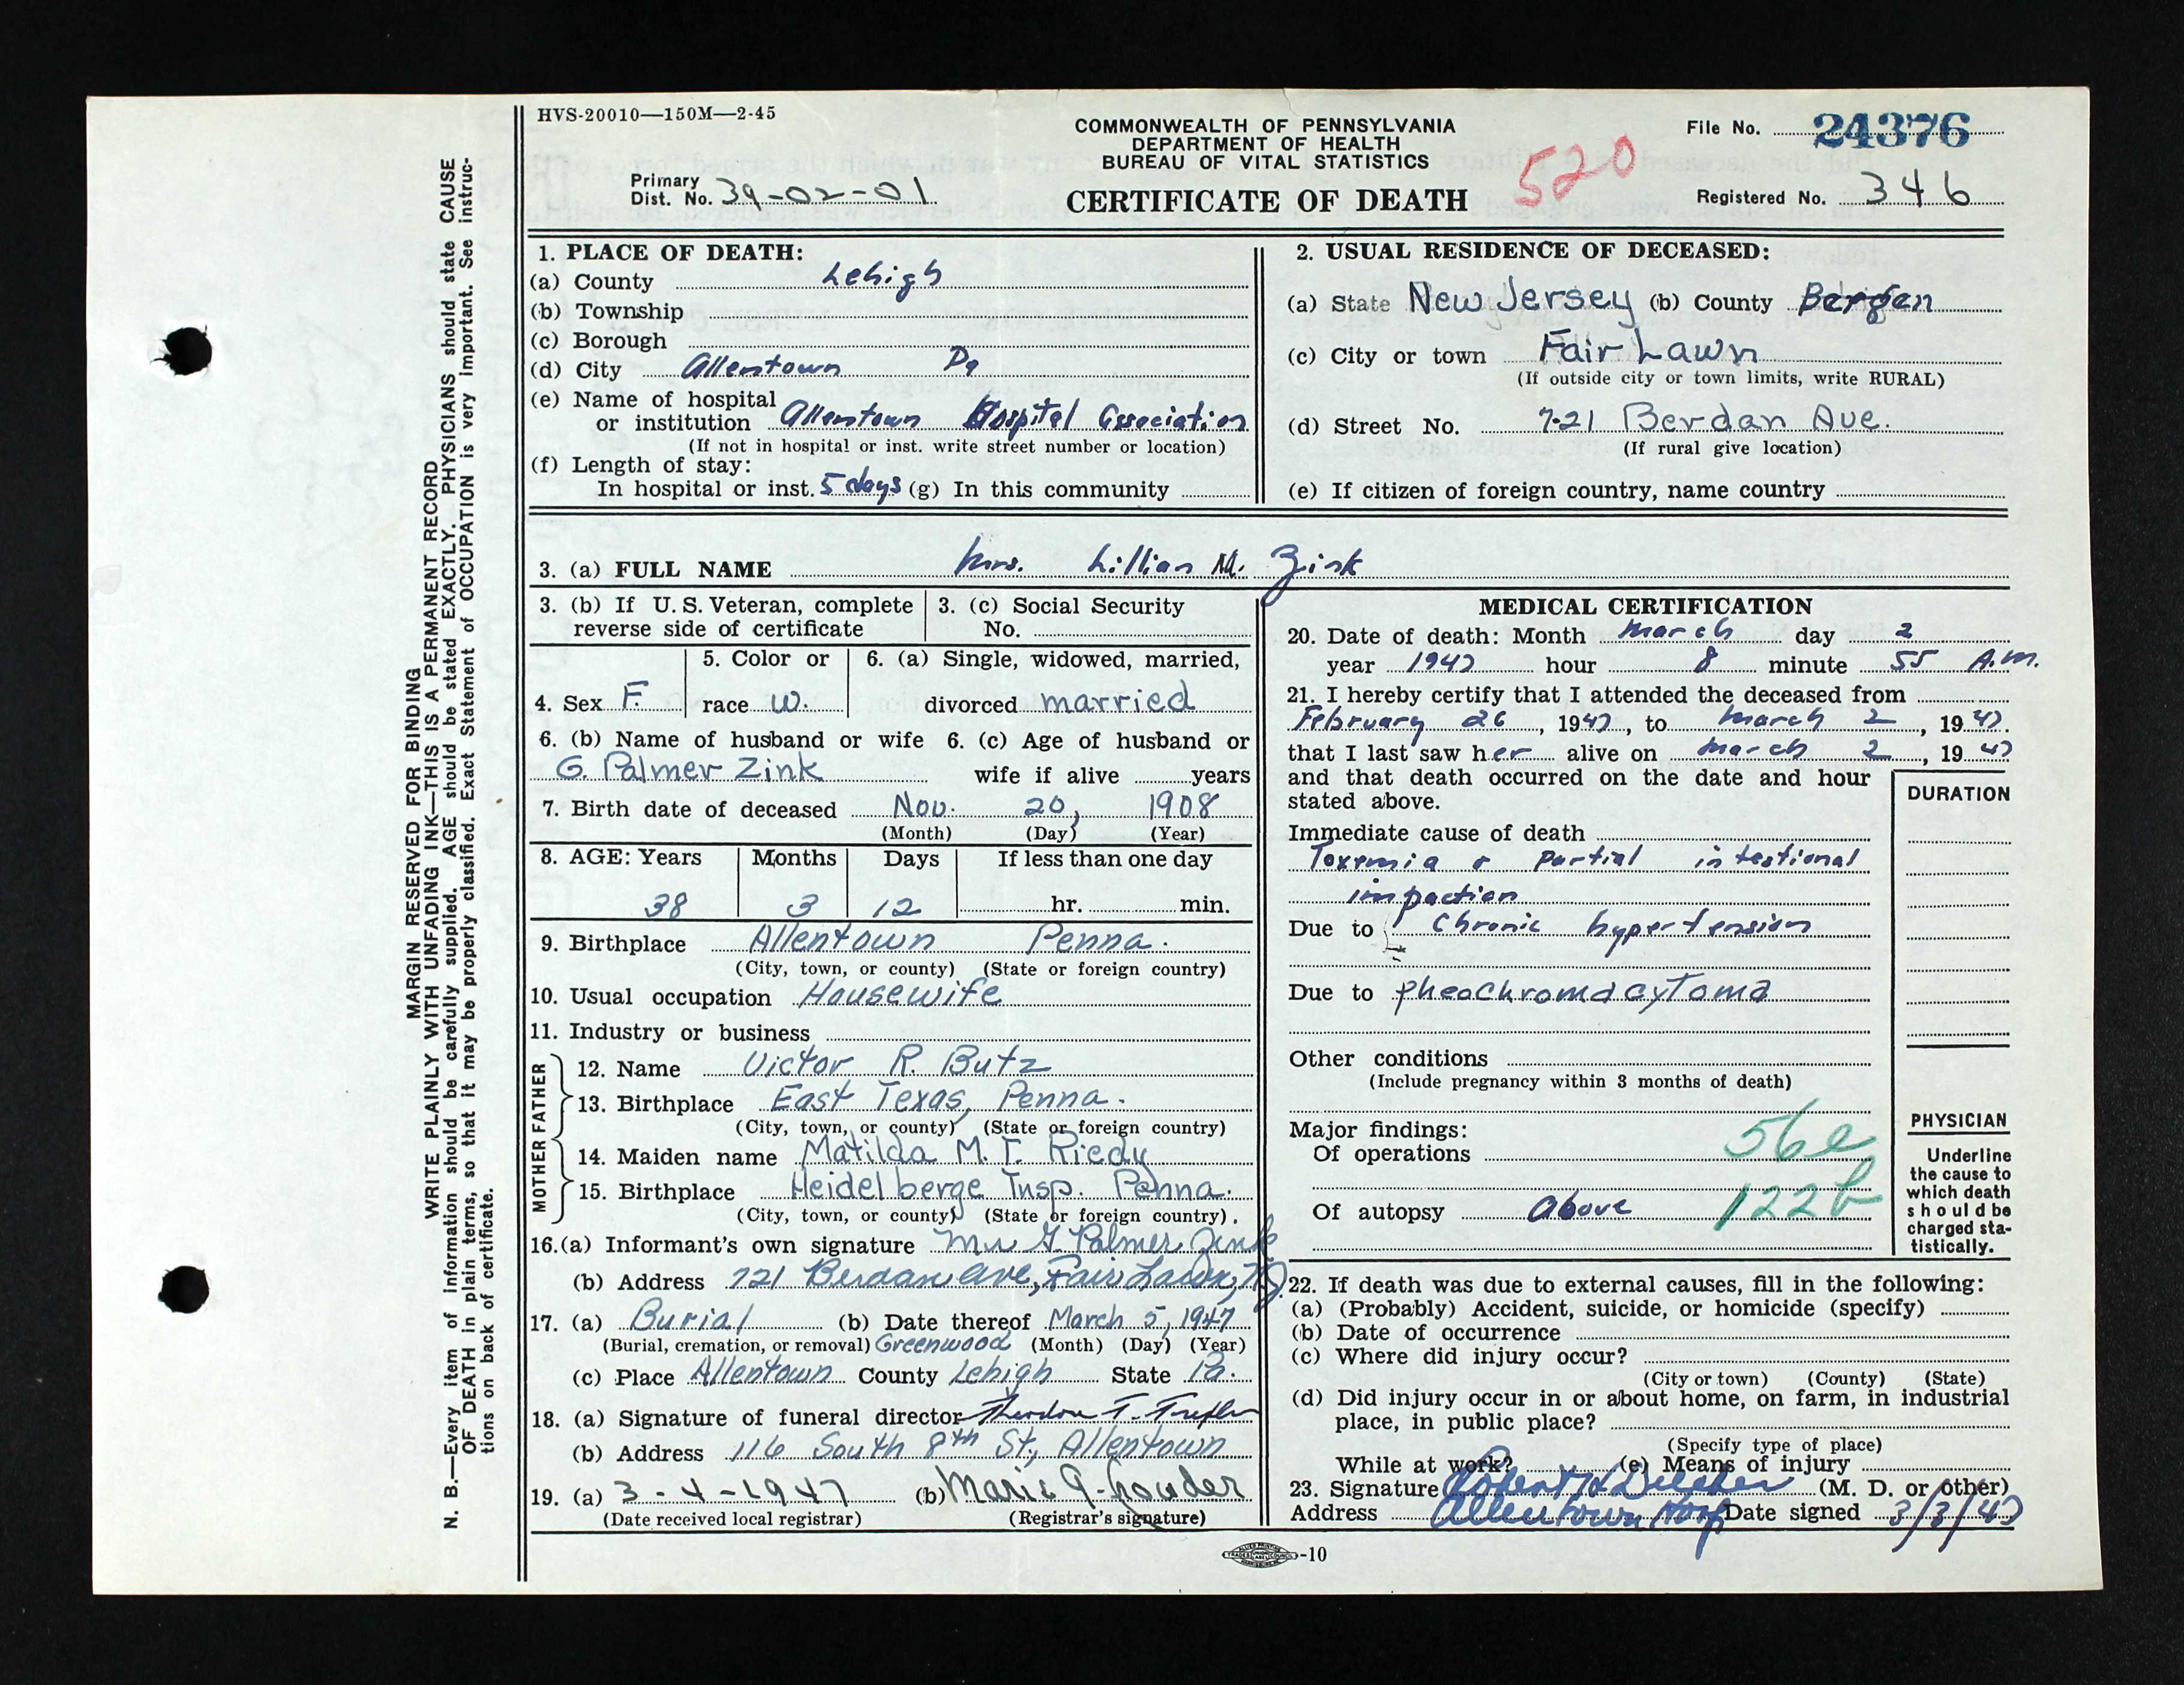 HVS-20010—150M—2-45
COMMONWEALTH OF PENNSYLVANIA
DEPARTMENT OF HEALTH
BUREAU OF VITAL STATISTICS
CERTIFICATE OF DEATH
520
File No. 24376
Primary
Dist. No. 39-02-01
Registered No. 346
MARGIN RESERVED FOR BINDING
WRITE PLAINLY WITH UNFADING INK—THIS IS A PERMANENT RECORD
N. B.—Every item of information should be carefully supplied. AGE should be stated EXACTLY. PHYSICIANS should state CAUSE
OF DEATH in plain terms, so that it may be properly classified. Exact Statement of OCCUPATION is very important. See instruc-
tions on back of certificate.
1. PLACE OF DEATH:
(a) County Lehigh
(b) Township
(c) Borough
(d) City Allentown Pa
(e) Name of hospital
or institution Allentown Hospital Association
(If not in hospital or inst. write street number or location)
(f) Length of stay:
In hospital or inst. 5 days (g) In this community
2. USUAL RESIDENCE OF DECEASED:
(a) State New Jersey (b) County Bergen
(c) City or town Fair Lawn
(If outside city or town limits, write RURAL)
(d) Street No. 7-21 Berdan Ave.
(If rural give location)
(e) If citizen of foreign country, name country
3. (a) FULL NAME Mrs. Lillian M. Zink
3. (b) If U. S. Veteran, complete
reverse side of certificate
3. (c) Social Security
No.
4. Sex F.
5. Color or
race W.
6. (a) Single, widowed, married,
divorced married
6. (b) Name of husband or wife
G. Palmer Zink
6. (c) Age of husband or
wife if alive years
7. Birth date of deceased Nov. 20, 1908
(Month) (Day) (Year)
8. AGE: Years Months Days If less than one day
38 3 12 hr. min.
9. Birthplace Allentown Penna.
(City, town, or county) (State or foreign country)
10. Usual occupation Housewife
11. Industry or business
FATHER
12. Name Victor R. Butz
13. Birthplace East Texas, Penna.
(City, town, or county) (State or foreign country)
MOTHER
14. Maiden name Matilda M. T. Riedy
15. Birthplace Heidelberge Twsp. Penna.
(City, town, or county) (State or foreign country).
16.(a) Informant's own signature Mr G. Palmer Zink
(b) Address 721 Berdan Ave, Fair Lawn, NJ
17. (a) Burial (b) Date thereof March 5, 1947
(Burial, cremation, or removal) Greenwood (Month) (Day) (Year)
(c) Place Allentown County Lehigh State Pa.
18. (a) Signature of funeral director Theodore T.
(b) Address 116 South 8th St, Allentown
19. (a) 3-4-1947 (b) Marie A.
(Date received local registrar) (Registrar's signature)
MEDICAL CERTIFICATION
20. Date of death: Month March day 2
year 1947 hour 8 minute 55 A.M.
21. I hereby certify that I attended the deceased from
February 26, 1947, to March 2, 1947.
that I last saw her alive on March 2, 1947
and that death occurred on the date and hour
stated above.
DURATION
Immediate cause of death
Toxemia & partial intestional
impaction
Due to Chronic hypertension
Due to pheochromacytoma
Other conditions
(Include pregnancy within 3 months of death)
Major findings: 56e
Of operations
Of autopsy above 122b
PHYSICIAN
Underline
the cause to
which death
should be
charged sta-
tistically.
22. If death was due to external causes, fill in the following:
(a) (Probably) Accident, suicide, or homicide (specify)
(b) Date of occurrence
(c) Where did injury occur?
(City or town) (County) (State)
(d) Did injury occur in or about home, on farm, in industrial
place, in public place?
(Specify type of place)
While at work? (e) Means of injury
23. Signature Robert H (M. D. or other)
Address Allentown Hosp Date signed 3/3/47
-10